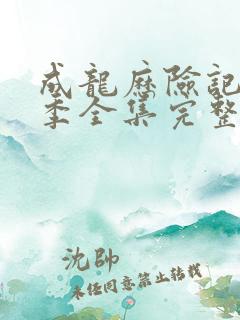 成龍歷險記
季全集完整
沈帥
未經同意禁止轉載